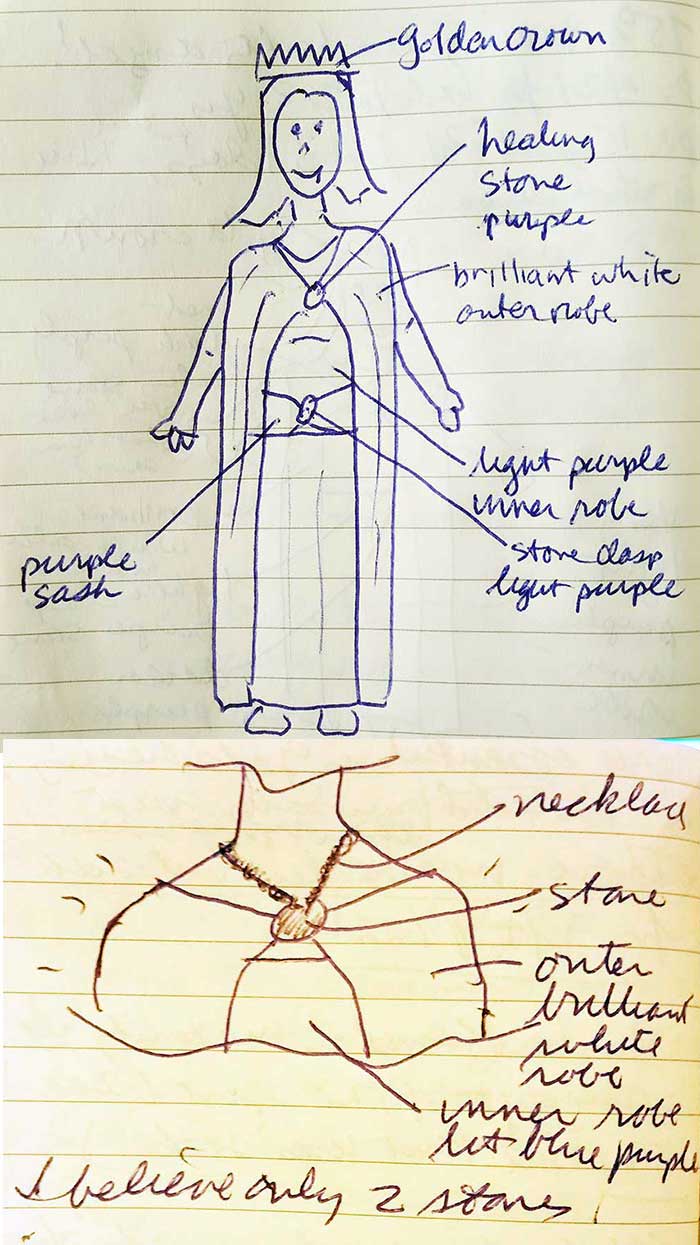 golden crown
healing
stone
purple
brilliant white
outer robe
light purple
inner robe
stone clasp
light purple
purple
sash
necklace
stone
outer
brilliant
white
robe
inner robe
lit blue purple
I believe only 2 stones